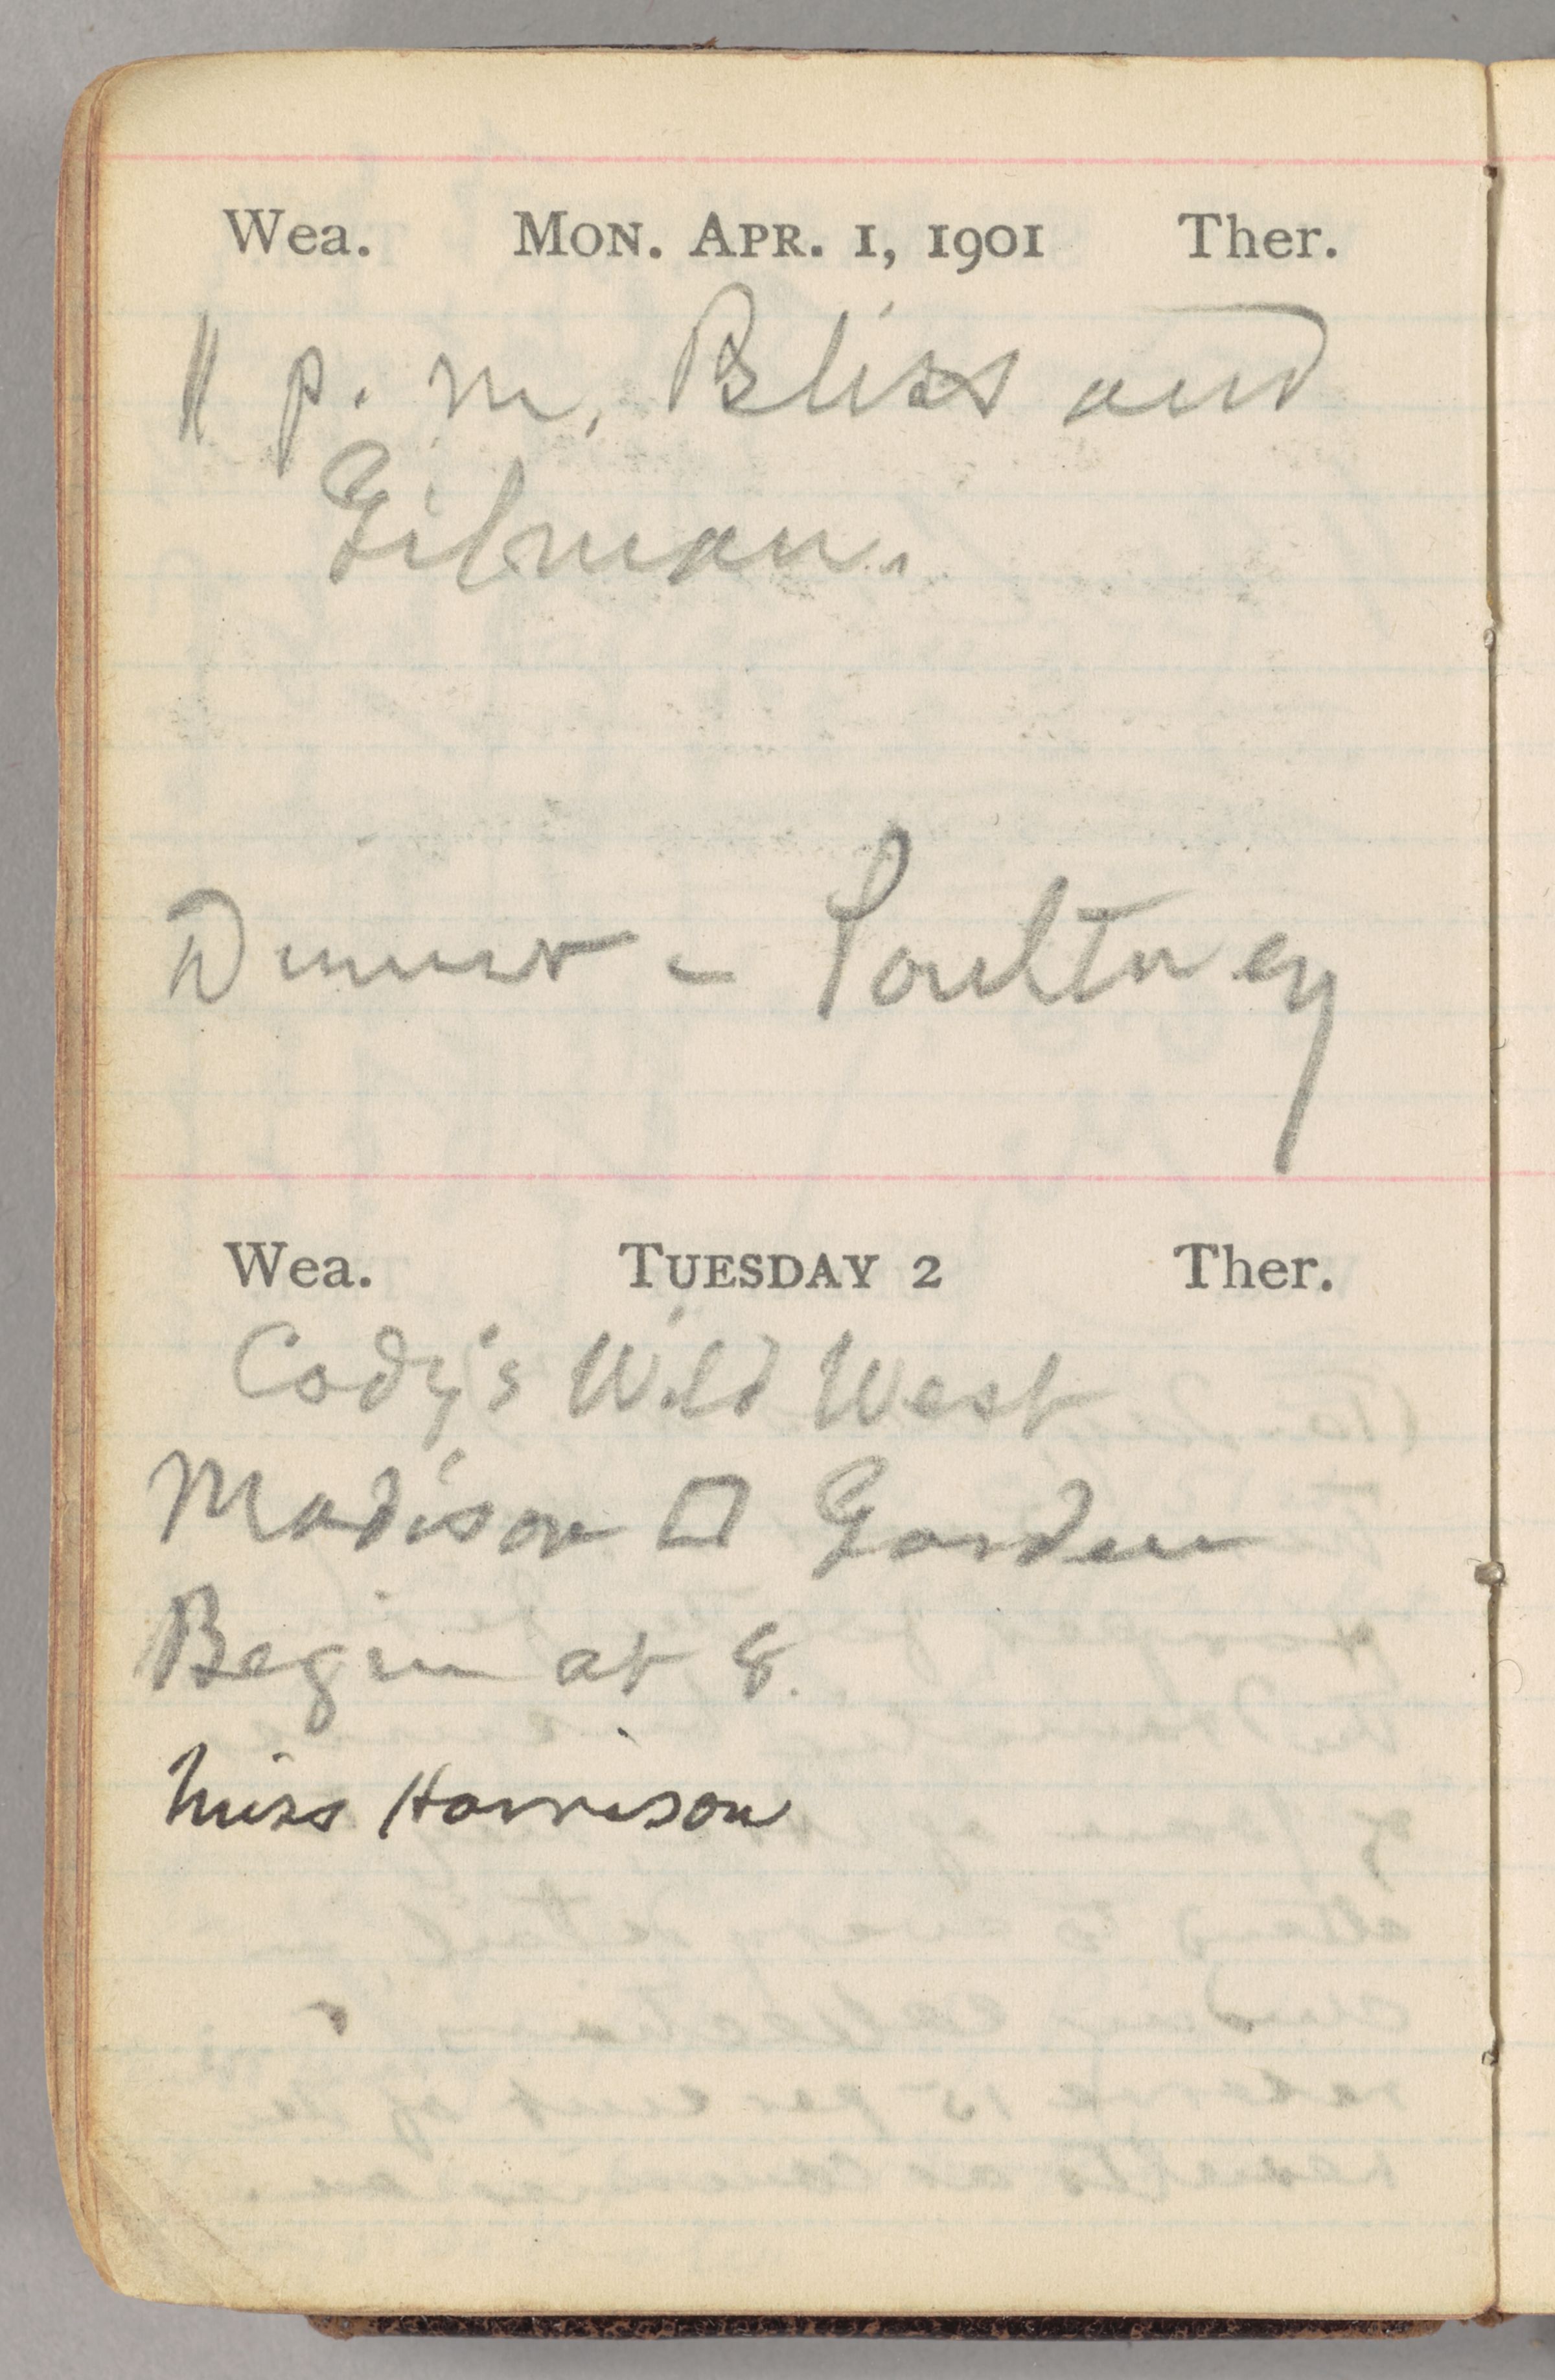 Wea. MON. APR. 1, 1901 Ther.
11 p. m. Bliss and
Gilman.
Dinner - Poultney
Wea. TUESDAY 2 Ther.
Cody's Wild West
Madison □ Garden
Begin at 8.
Miss Harrison